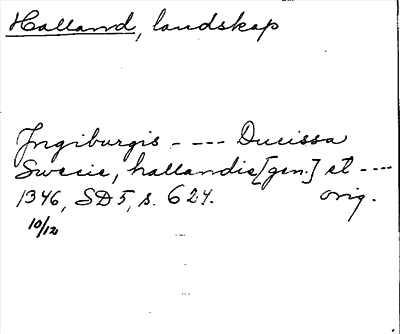 Halland, landskap
Ingiburgis - --- Ducissa
Swecie, hallandie [gen.] et ----
1346, SD5, s. 624. orig.
10/12